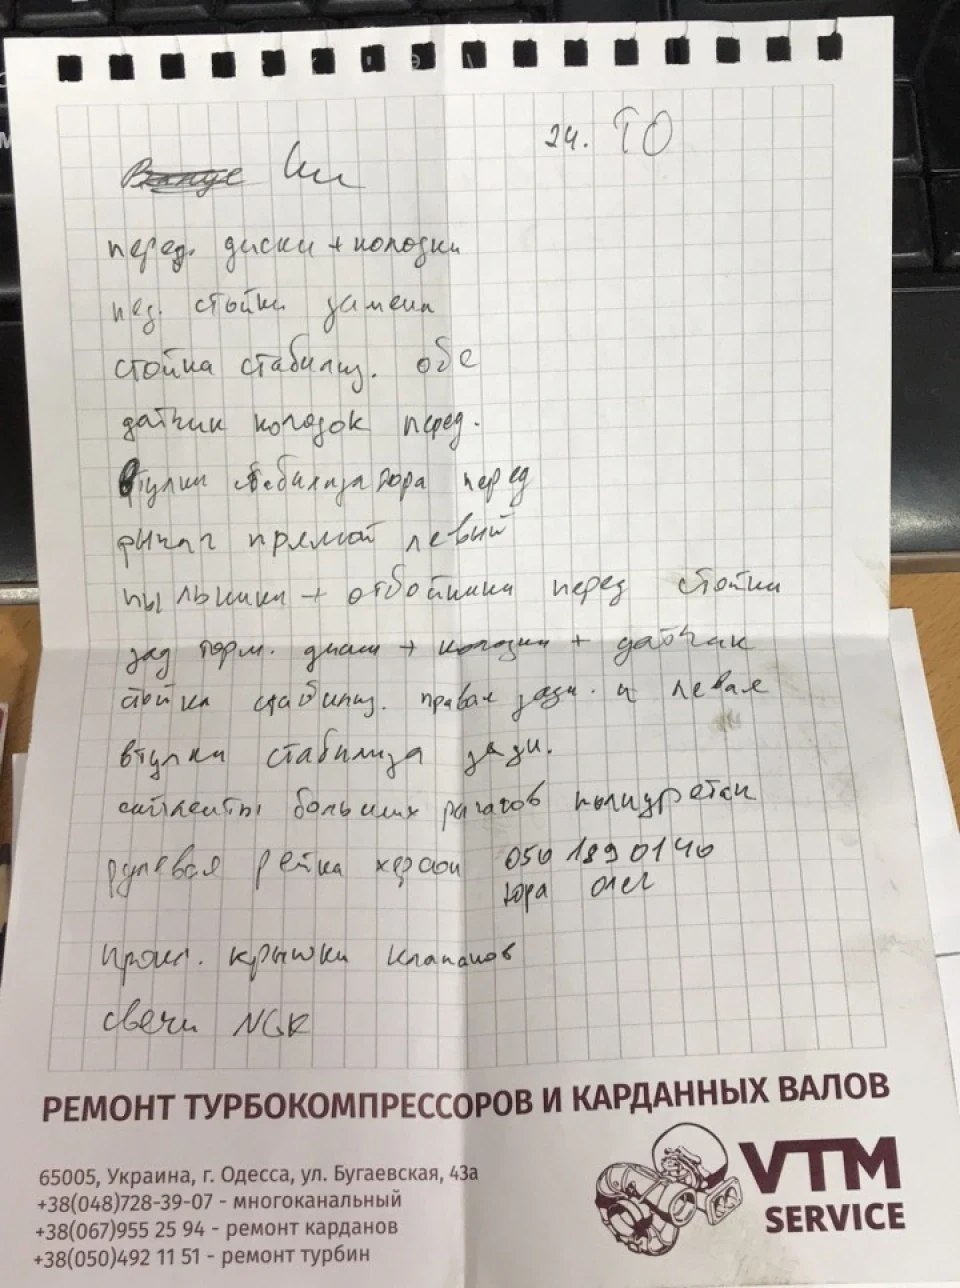 24. ТО
перед. диски + колодки
пед. стойки замена
стойка стабилиз. обе
датчик колодок перед.
втулки стабилизатора перед
рычаг прямой левый
пыльники + отбойники перед стойки
зад торм. диски + колодки + датчик
стойка стабилиз. правая задн. и левая
втулки стабилиза задн.
сайленты больших рычагов полиуретан
рулевая рейка херсон 050 1890140
Юра Олег
прокл. крышки клапанов
свечи NGK
РЕМОНТ ТУРБОКОМПРЕССОРОВ И КАРДАННЫХ ВАЛОВ
65005, Украина, г. Одесса, ул. Бугаевская, 43а
+38(048)728-39-07 - многоканальный
+38(067)955 25 94 - ремонт карданов
+38(050)492 11 51 - ремонт турбин
VTM
SERVICE